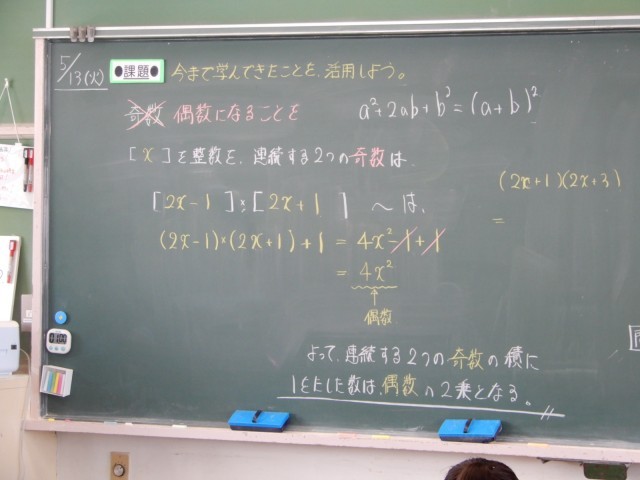 5/13(火) ●課題● 今まで学んできたことを、活用しよう。
奇数 偶数になることを a²+2ab+b²=(a+b)²
[x]を整数を、連続する2つの奇数は、
[2x-1]と[2x+1]〜は、
(2x-1)×(2x+1)+1=4x²-1+1
=4x²
↑
偶数
(2x+1)(2x+3)
=
よって、連続する2つの奇数の積に
1をたした数は、偶数の2乗となる。